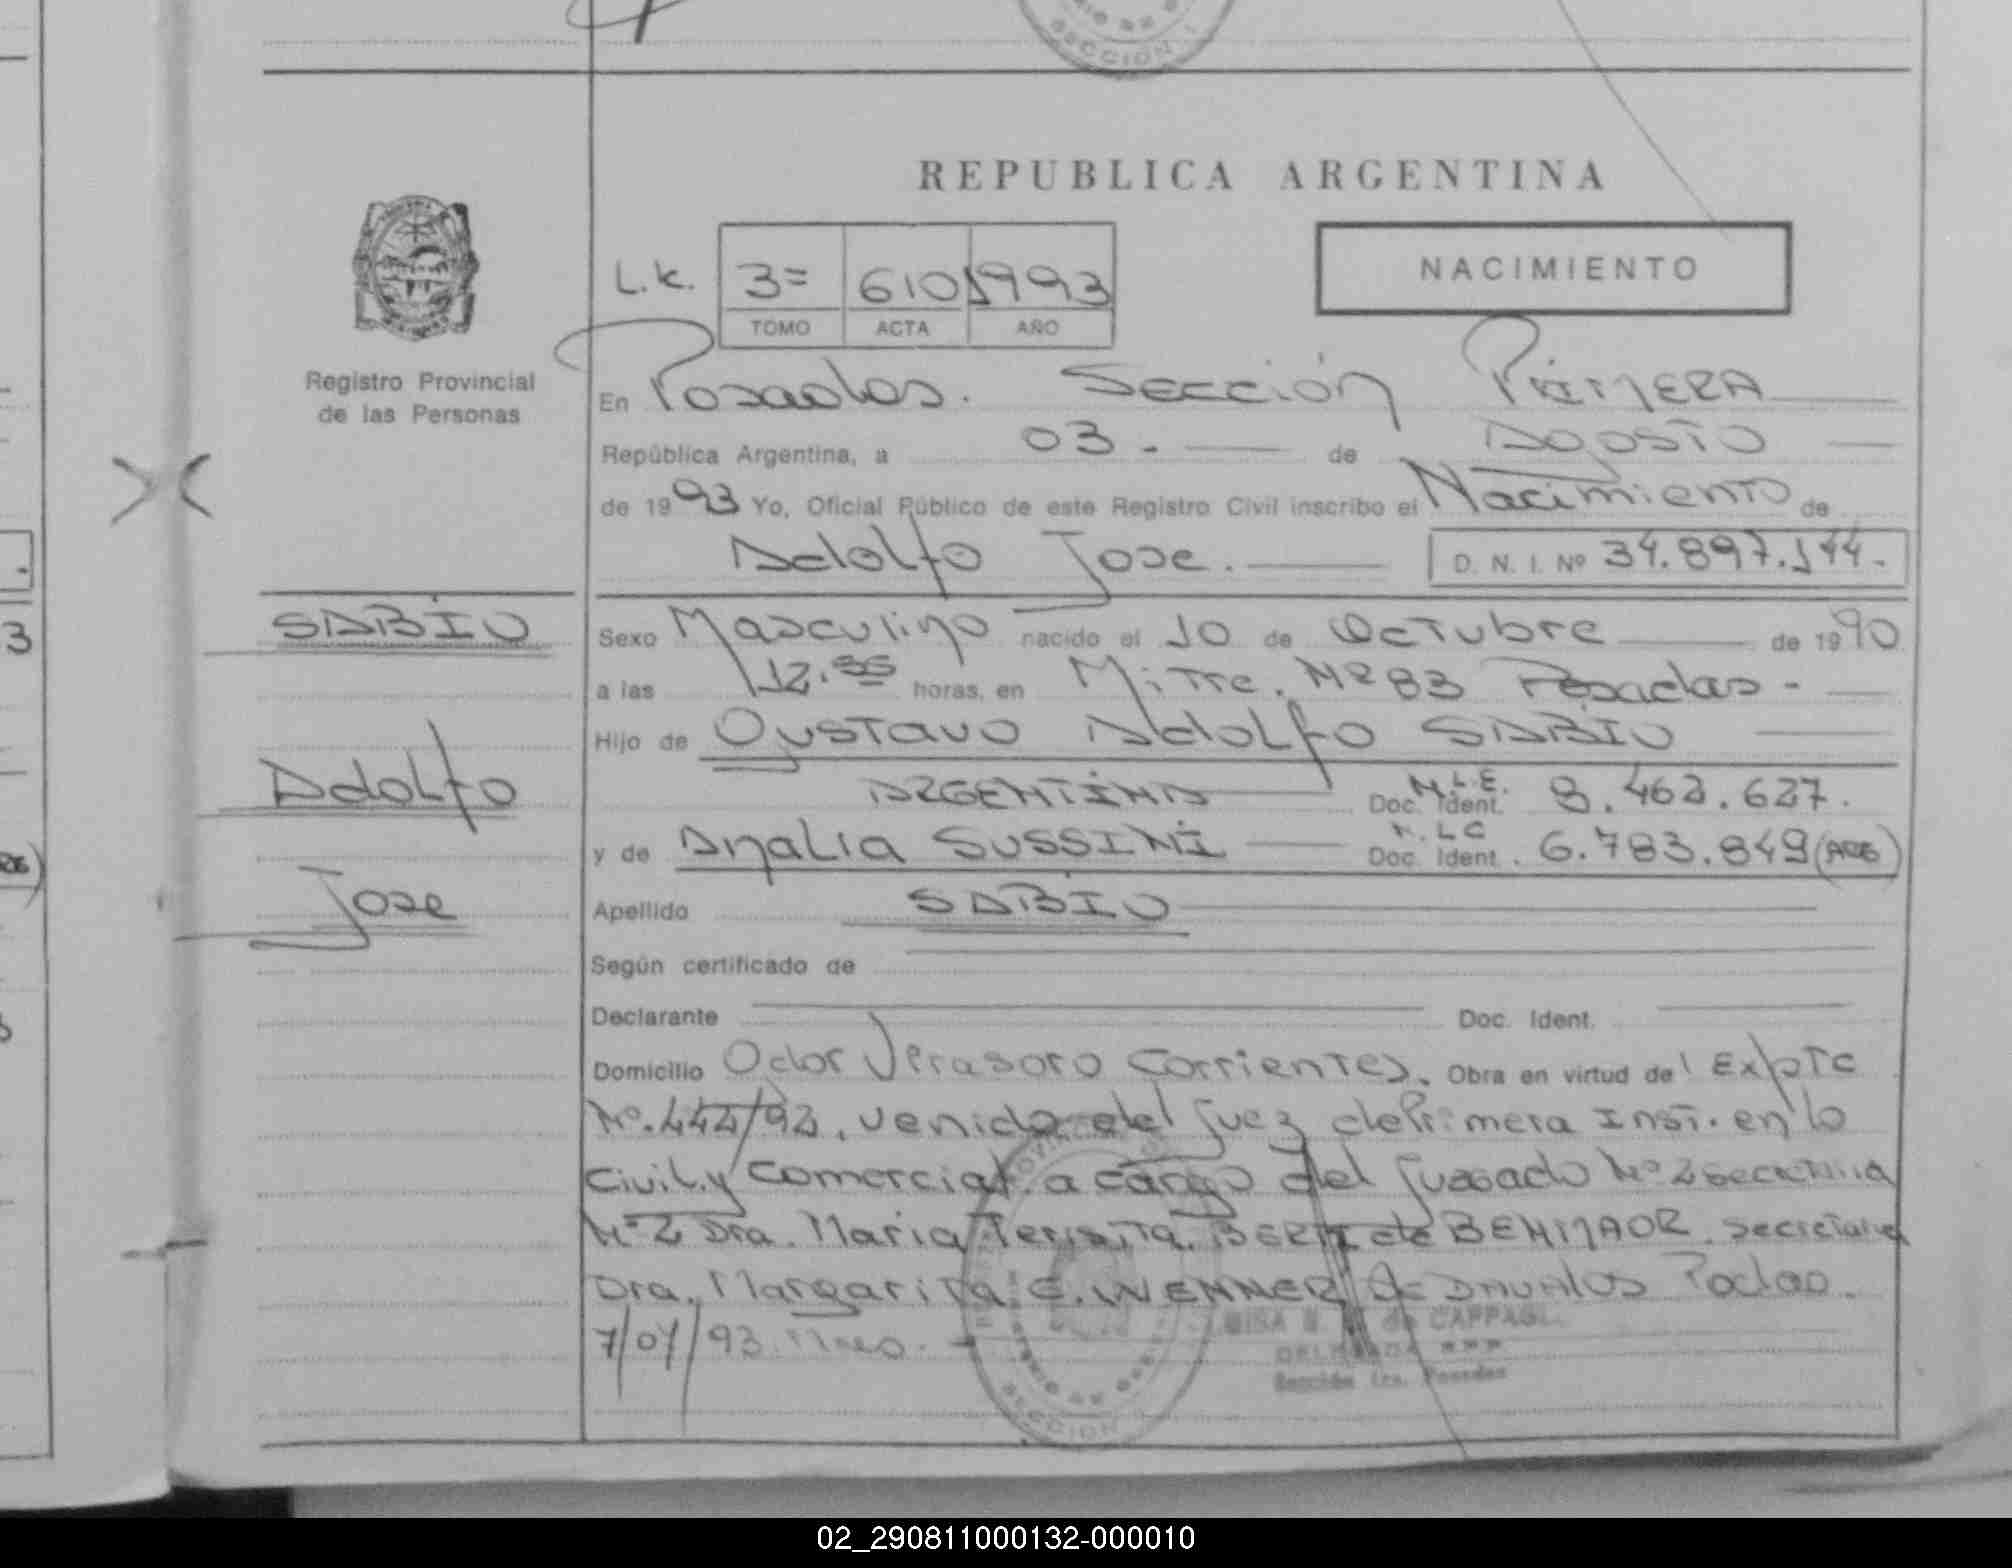 SECCION 1
REPUBLICA ARGENTINA
NACIMIENTO
L.K. 3= 610 1993
TOMO ACTA AÑO
Registro Provincial
de las Personas
En Posadas. Sección PRIMERA
República Argentina, a 03.- de Agosto
de 1993 Yo, Oficial Público de este Registro Civil inscribo el Nacimiento de
Adolfo Jose. D. N. I. Nº 34.897.144.-
SABIO
Adolfo
Jose
Sexo Masculino nacido el 10 de Octubre de 1990
a las 12.55 horas, en Mitre. Nº 83 Posadas -
Hijo de Gustavo Adolfo SABIO
ARGENTINA M.L.E. Doc. Ident. 8.462.627.
y de Analia SUSSINI M.LC Doc. Ident. 6.783.849 (ARG)
Apellido SABIO
Según certificado de
Declarante Doc. Ident.
Domicilio Odor Virasoro Corrientes. Obra en virtud del Expte
Nº.442/92, venido del Juez de Primera Inst. en lo
Civil.y Comercial a cargo del Juzgado Nº 2 secretaria
Nº 2 Dra. Maria Teresita de BENMAOR. Secretaria
Dra. Margarita E. WENNER de Davalos Pdas.
7/07/93.
de CAPPAGL
DELEGADA
Sección 1ra. Posadas
SECCION
02_290811000132-000010